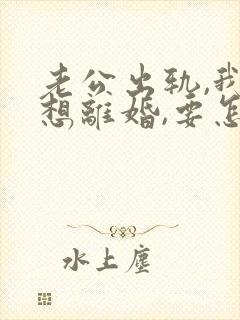 老公出轨,我
想離婚,要怎
水上塵